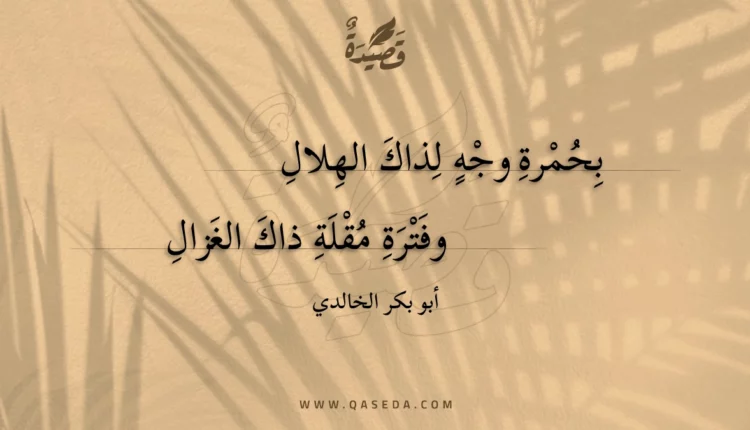 قَصِيْدَةٌ
بِحُمْرةِ وجْهٍ لِذاكَ الهِلالِ
وفَتْرَةِ مُقْلَةِ ذاكَ الغَزالِ
أبو بكر الخالدي
WWW.QASEDA.COM